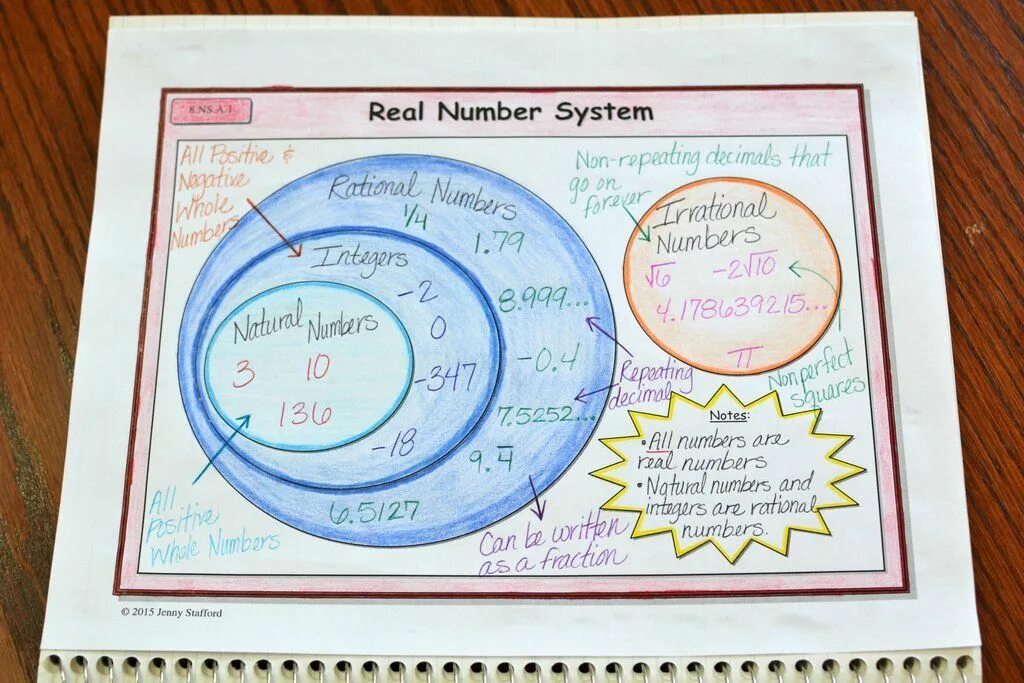 8.NS.A.1
Real Number System
All Positive &
Negative
Whole
Numbers
Rational Numbers
1/4
1.79
Integers
-2
8.999...
0
Natural Numbers
3 10
136
-347
-0.4
Repeating
decimal
7.5252...
-18
9.4̅
6.5127
All
Positive
Whole Numbers
Can be written
as a fraction
Non-repeating decimals that
go on
forever
Irrational
Numbers
√6 -2√10
4.178639215...
π
Nonperfect
squares
Notes:
• All numbers are
real numbers
• Natural numbers and
integers are rational
numbers.
© 2015 Jenny Stafford